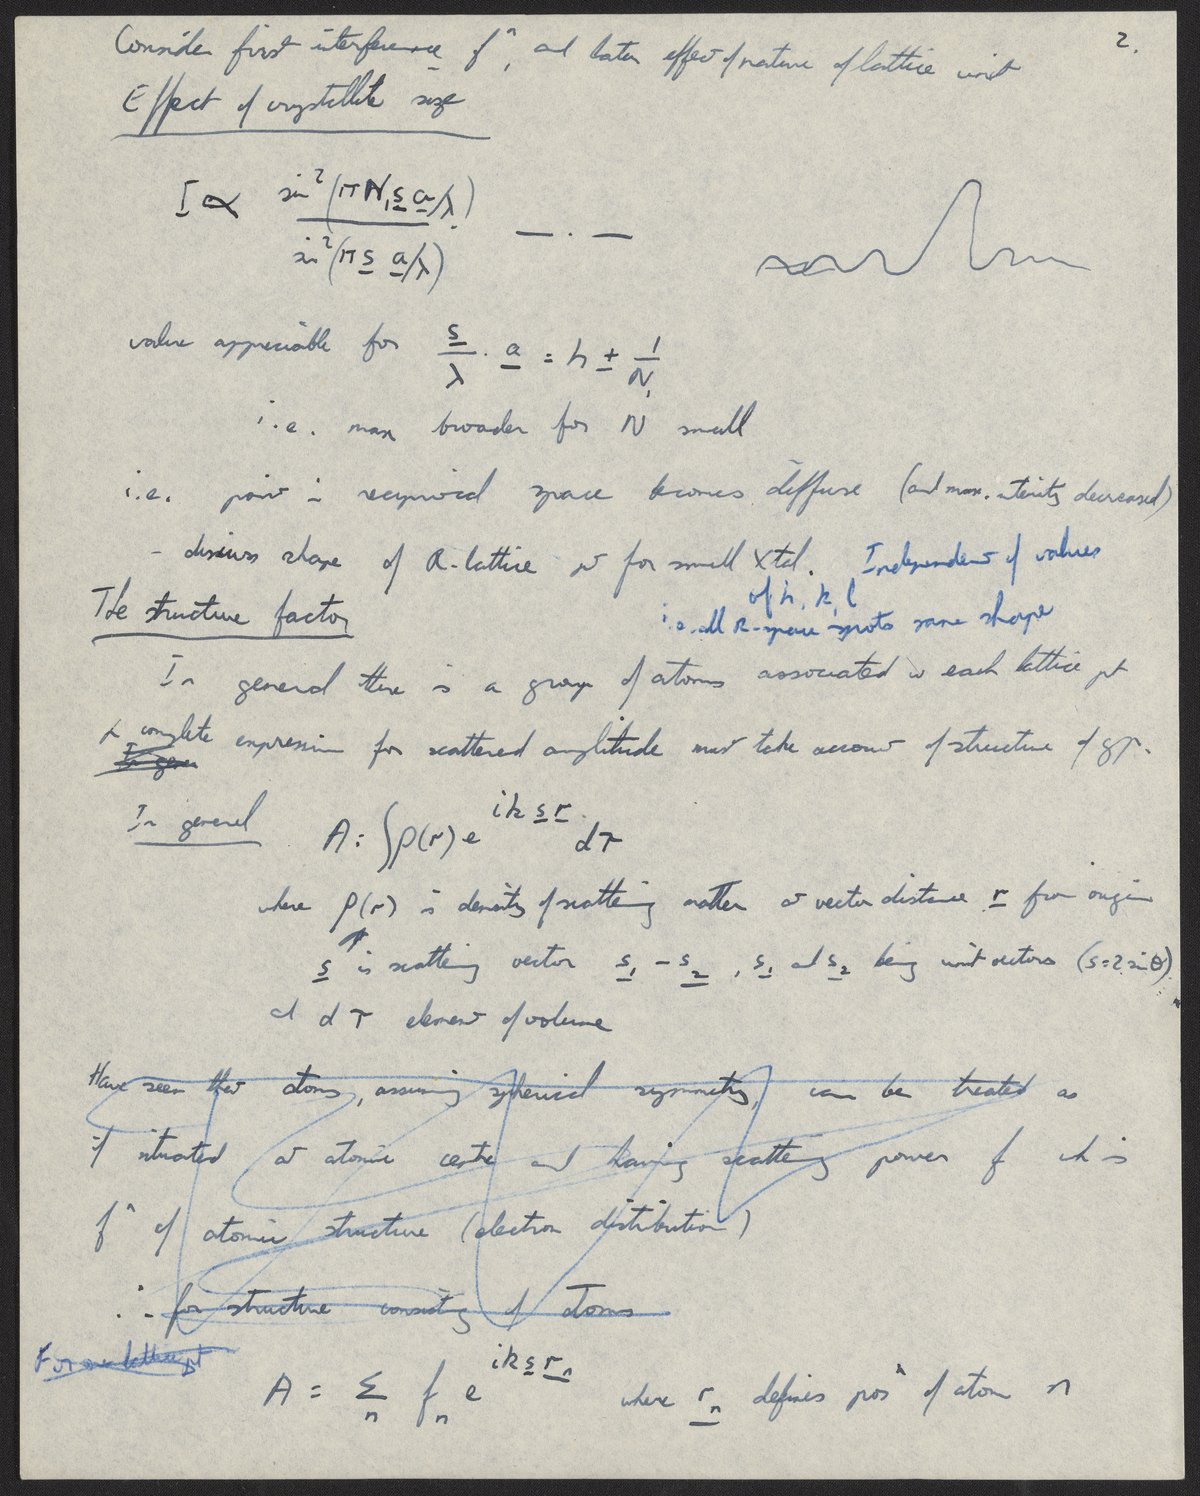 2.
Consider first interference fⁿ, and later effect of nature of lattice unit
Effect of crystallite size
I ∝ sin²(π N₁ s a/λ) / sin²(π s a/λ) — . —
value appreciable for s/λ . a = h ± 1/N₁
i.e. max broader for N small
i.e. point in reciprocal space becomes diffuse (and max. intensity decreased)
- discuss shape of R-lattice pt for small Xtal. Independent of values
of h, k, l
i.e. all R-space spots same shape
The structure factor
In general there is a group of atoms associated w each lattice pt
& complete expression for scattered amplitude must take account of structure of gp.
In gener
In general A = ∫ρ(r) e^{ik s r} dτ
where ρ(r) is density of scattering matter at vector distance r from origin
s is scattering vector s₁ - s₂, s₁ and s₂ being unit vectors (s = 2 sin θ)
and dτ element of volume
Have seen that atoms, assuming spherical symmetry, can be treated as
if situated at atomic centre and having scattering power f wh is
fⁿ of atomic structure (electron distribution)
∴ for structure consisting of atoms
For one lattice pt
A = Σₙ fₙ e^{ik s rₙ} where rₙ defines posⁿ of atom n